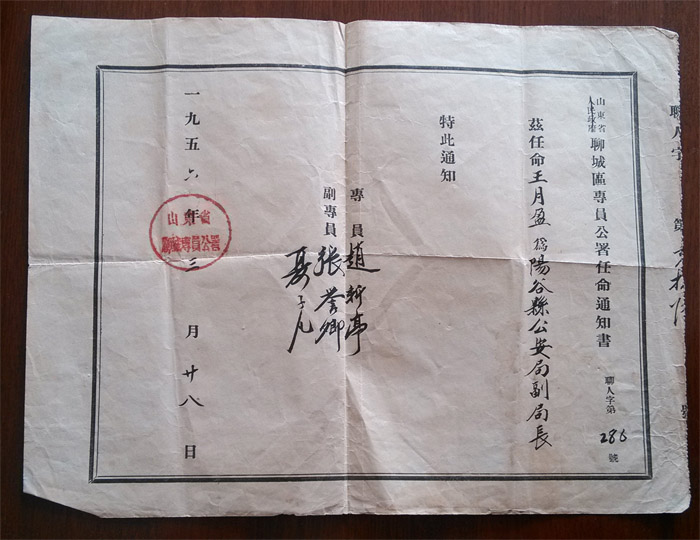 山東省
人民政府
聊城區專員公署任命通知書
聊人字第
286
號
茲任命王月盈為陽谷縣公安局副局長
特此通知
專員 趙新亭
副專員 張誉卿
夏子凡
一九五六年三月廿八日
山東省
聊城專員公署
聊人字
第
號